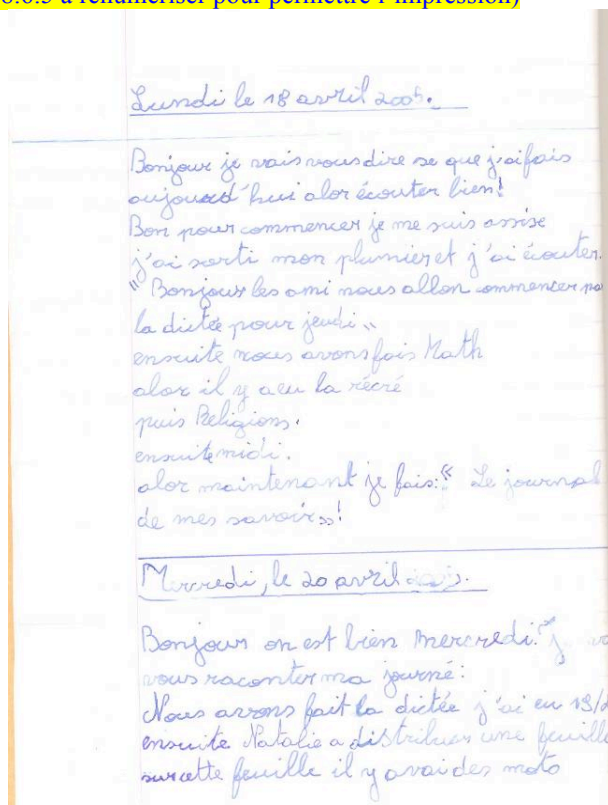 6.6.5 à renumériser pour permettre l'impression)
Lundi le 18 avril 2005.
Bonjour je vais vous dire se que j'ai fais
aujourd'hui alor écouter bien!
Bon pour commencer je me suis assise
j'ai sorti mon plumier et j'ai écouter.
"Bonjour les ami nous allon commencer pa
la dictée pour jeudi"
ensuite nous avons fais Math
alor il y a eu la récré
puis Religions.
ensuite midi.
alor maintenant je fais: "Le journal
de mes savoirs"!
Mercredi, le 20 avril 2005.
Bonjour on est bien mercredi.
vous raconter ma journé:
Nous avons fait la dictée j'ai eu 19/2
ensuite Natalie a distribuer une feuille
sur cette feuille il y avai des moto